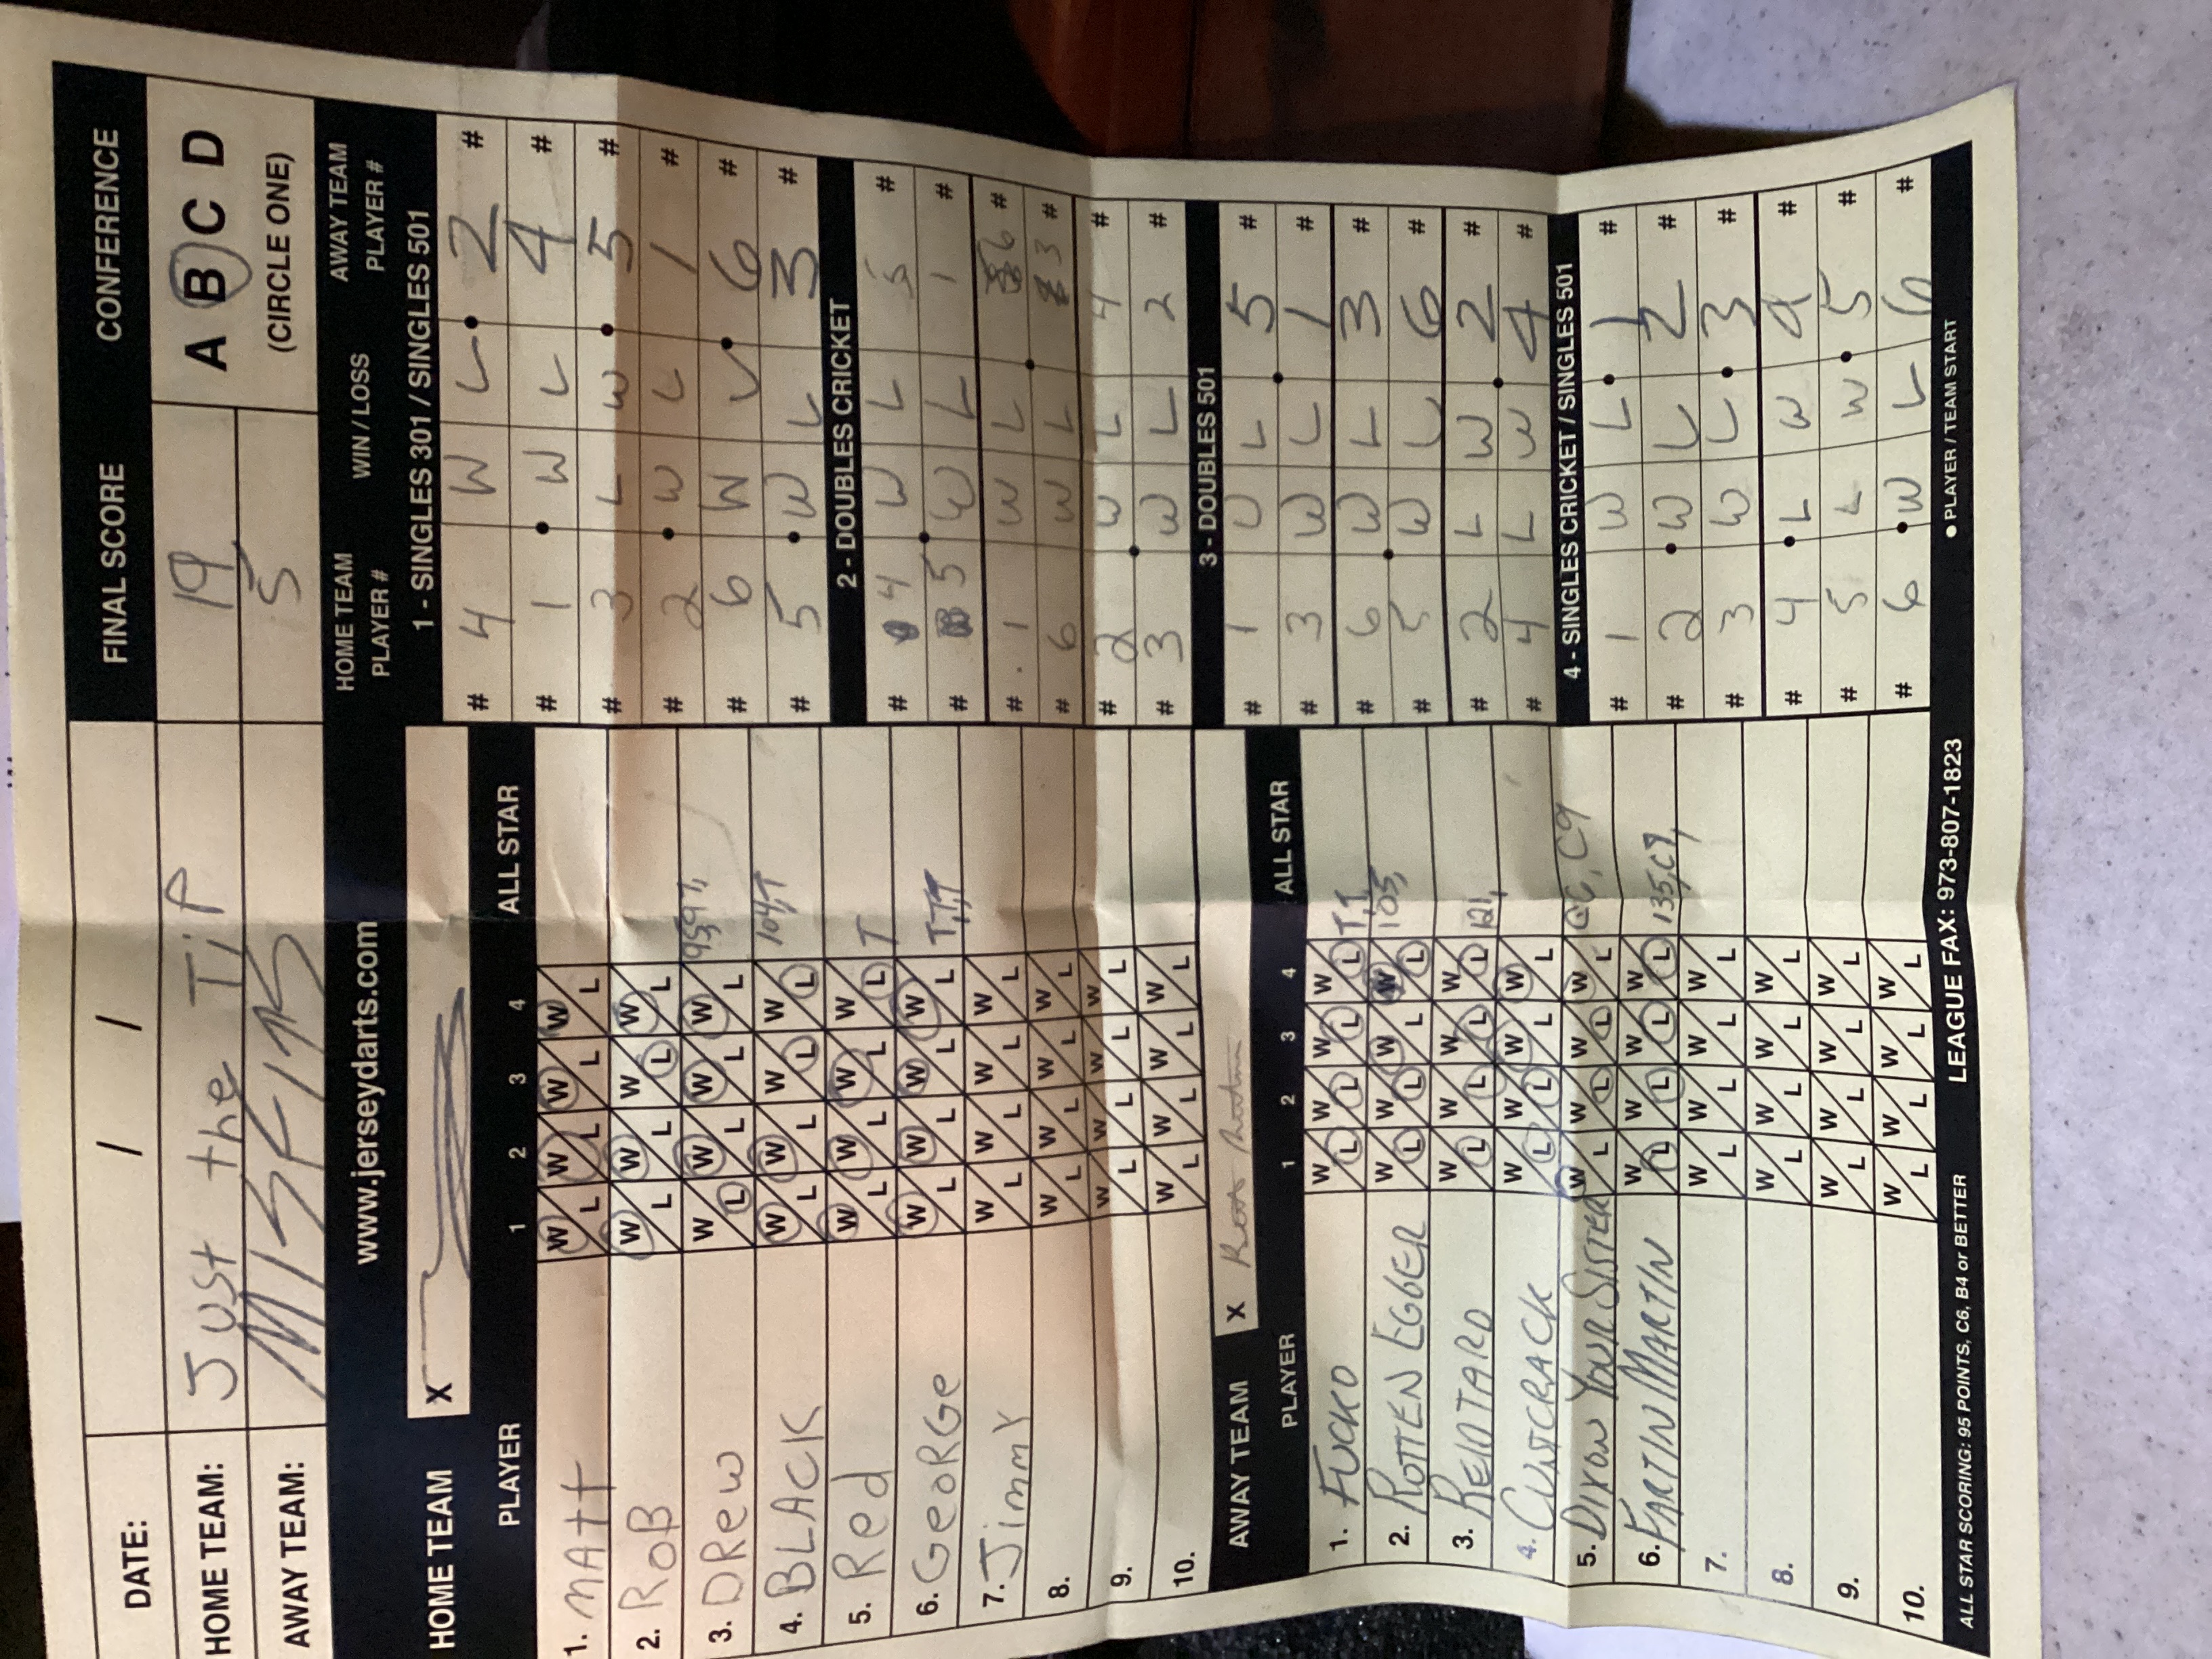 DATE: / /
FINAL SCORE CONFERENCE
HOME TEAM: Just the TiP 19
AWAY TEAM: MISFITS 5
A B C D
(CIRCLE ONE)
www.jerseydarts.com
HOME TEAM PLAYER # WIN / LOSS AWAY TEAM PLAYER #
HOME TEAM X
PLAYER 1 2 3 4 ALL STAR
1. MAtt W L W L W L W L
2. RoB W L W L W L W L
3. DRew W L W L W L W L 95,97,
4. BLACK W L W L W L W L 104,T
5. Red W L W L W L W L T
6. GeoRGe W L W L W L W L T,T,T
7. Jimmy W L W L W L W L
8. W L W L W L W L
9. W L W L W L W L
10. W L W L W L W L
AWAY TEAM X
PLAYER 1 2 3 4 ALL STAR
1. FUCKO W L W L W L W L T,T
2. ROTTEN EGGER W L W L W L W L 105,
3. W L W L W L W L 121,
4. CUNTCRACK W L W L W L W L
5. DIXON YOUR SISTER W L W L W L W L C6, C9
6. FARTIN MARTIN W L W L W L W L 135,C9,
7. W L W L W L W L
8. W L W L W L W L
9. W L W L W L W L
10. W L W L W L W L
ALL STAR SCORING: 95 POINTS, C6, B4 or BETTER
LEAGUE FAX: 973-807-1823
1 - SINGLES 301 / SINGLES 501
# 4 W L 2 #
# 1 W L 4 #
# 3 L W 5 #
# 2 W L 1 #
# 6 W L 6 #
# 5 W L 3 #
2 - DOUBLES CRICKET
# 4 W L 5 #
# 5 W L 1 #
# 1 W L 6 #
# 6 W L 3 #
# 2 W L 4 #
# 3 W L 2 #
3 - DOUBLES 501
# 1 W L 5 #
# 3 W L 1 #
# 6 W L 3 #
# 5 W L 6 #
# 2 L W 2 #
# 4 L W 4 #
4 - SINGLES CRICKET / SINGLES 501
# 1 W L 1 #
# 2 W L 2 #
# 3 W L 3 #
# 4 L W 4 #
# 5 L W 5 #
# 6 W L 6 #
● PLAYER / TEAM START